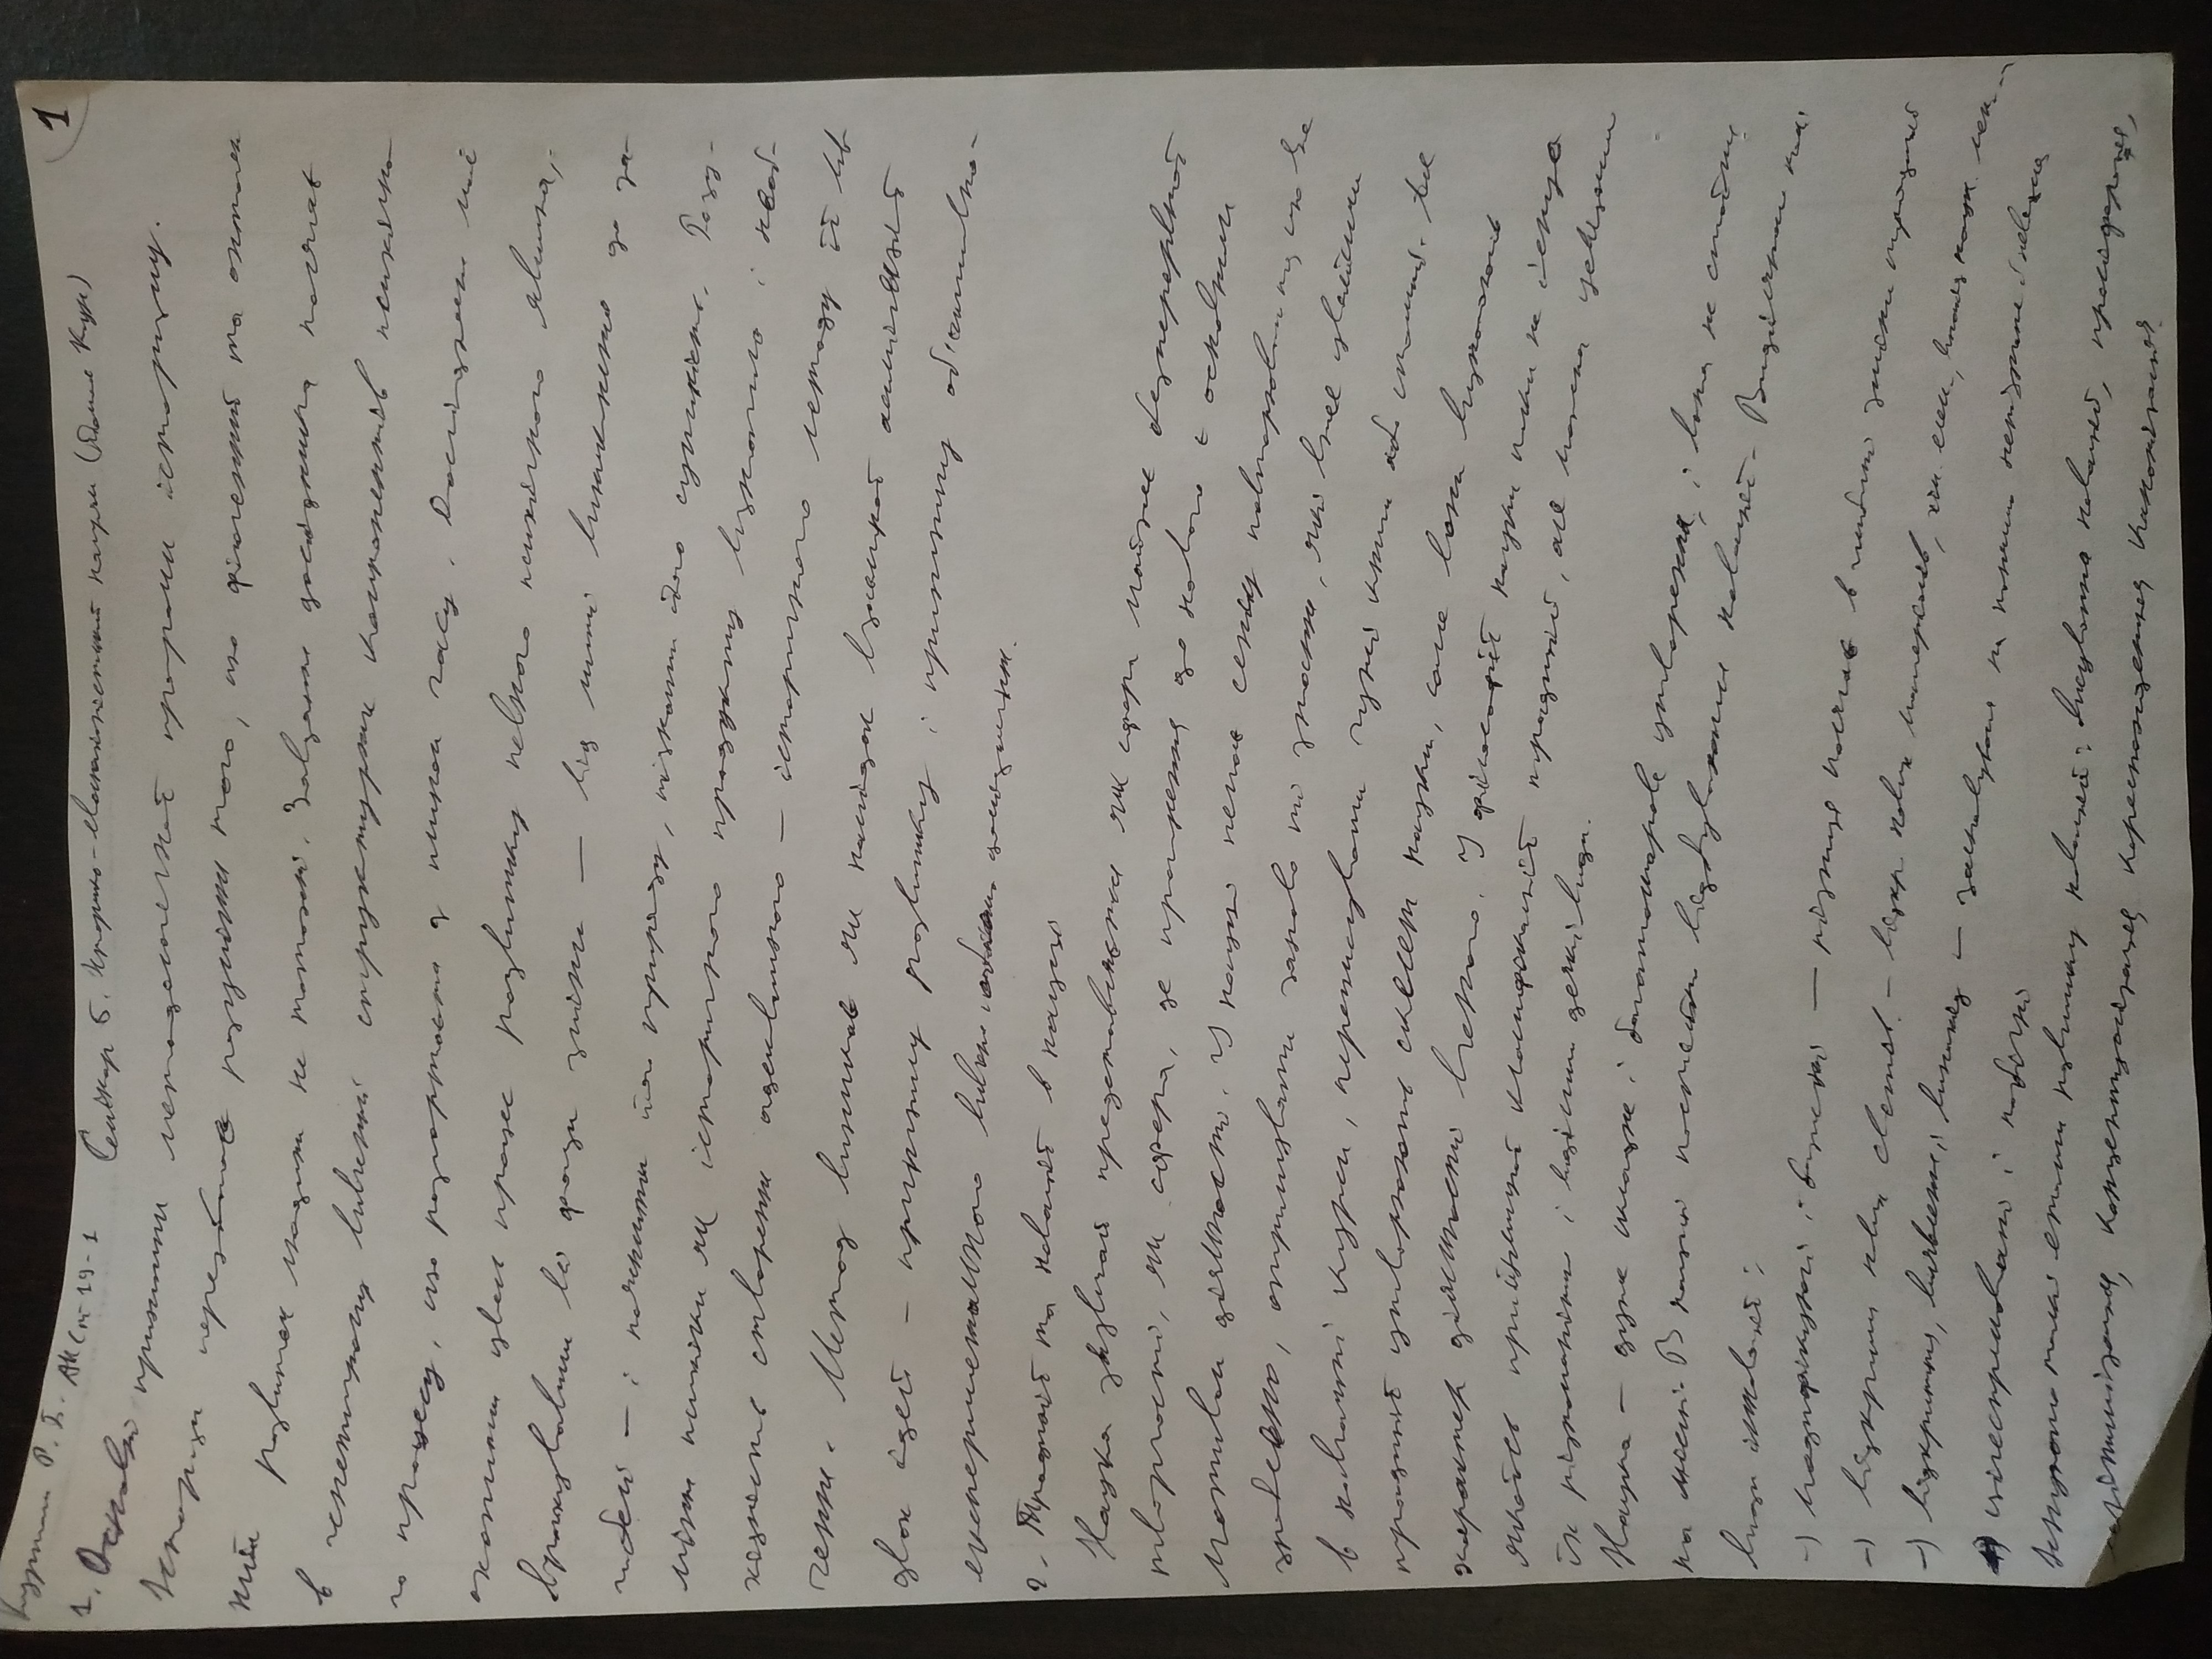 Р. Б. АКСт 19-1
1
Семінар 6. Історико-еволюціоністський напрям
1. Основні принципи методологічної програми історизму.
Історизм передбачає розуміння того, що філогенний та онтоген
ний розвиток людини не тотожні. Завдання дослідника полягає
в генетичному вивченні структурних компонентів психічно-
го процесу, що розгортаєтся з плином часу. Дослідник має
охопити увесь процес розвитку певного психічного явища,
врахувавши всі фази зміни — від миті виникнення до за-
гибелі — і пояснити його природу, пізнати його сутність. Розу-
міння психіки як історичного продукту визначило і необ-
хідність створення адекватного — історичного методу її вив
чення. Метод виникає як наслідок взаємної асиміляції
двох ідей — принципу розвитку і принципу об'єктивно-
експериментального дослідження.
2. Традиції та новації в науці
Наука зазвичай представляється як сфера майже безперервної
творчості, як сфера, де прагнення до нового є основним
мотивом діяльності. У науці немає сенсу повторювати те, що вже
зроблено, отримувати заново ті знання, які вже увійшли
в навчальні курси, переписувати чужі книги або статті. Але
традиції утворюють скелет науки, саме вони визначають
характер діяльності вченого. У філософії науки поки не існує
якоїсь прийнятної класифікації традицій, але можна усвідомити
їх різноманіття і виділити деякі види.
Наука — дуже складне і багатошарове утворення, і вона не стоїть
на місці. В науці постійно відбуваються новації. Виділяємо такі
види інновації:
-) модифікуючі і базисні — різниця полягає в глибині зміни традицій
-) відкриття нових - відкр. нових матеріалів, хім. елем.,
-) відкриття, виявлення і винахід —
-) цілеспрямовані і побічні
Існують такі етапи розвитку новацій: висування новації, проліферація,
легітимізація, концептуалізація, кореспонденція, канонізація.